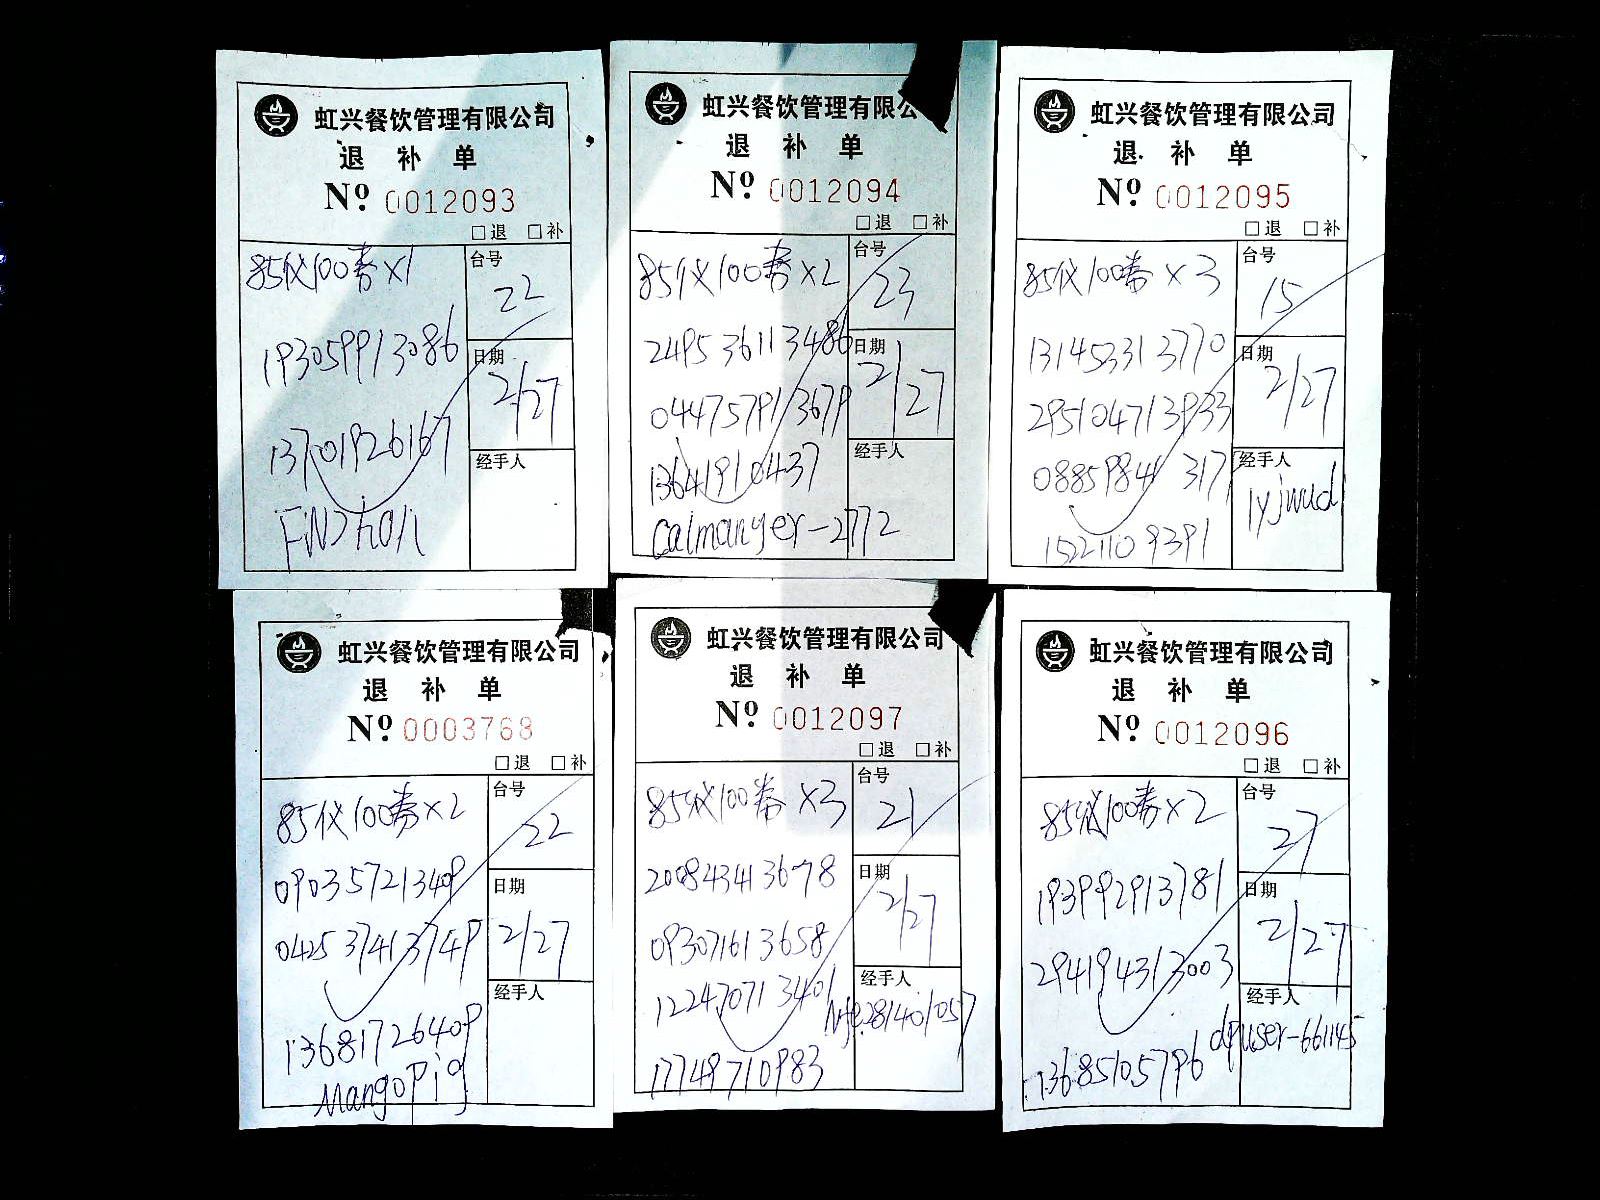 虹兴餐饮管理有限公司
退 补 单
Nº 0012093
□退 □补
85代100券×1
台号
22
193059913086
日期
2/27
13701926167
经手人
虹兴餐饮管理有限公
退 补 单
Nº 0012094
□退 □补
85代100券×2
台号
23
249536113486
日期
2/27
044757913679
经手人
13641910437
calmanyer-2772
虹兴餐饮管理有限公司
退 补 单
Nº 0012095
□退 □补
85代100券×3
台号
15
131453313770
日期
2/27
295104713933
经手人
lyjwud
15221109391
虹兴餐饮管理有限公司
退 补 单
Nº 0003768
□退 □补
85代100券×2
台号
22
090357213409
日期
2/27
042537413749
经手人
13681726409
MangoPig
虹兴餐饮管理有限公司
退 补 单
Nº 0012097
□退 □补
85代100券×3
台号
21
200843413678
日期
2/27
093071613658
经手人
122470713401
17749710983
虹兴餐饮管理有限公司
退 补 单
Nº 0012096
□退 □补
85代100券×2
台号
27
193992913781
日期
2/27
294194313003
经手人
dpuser-661145
13685105796